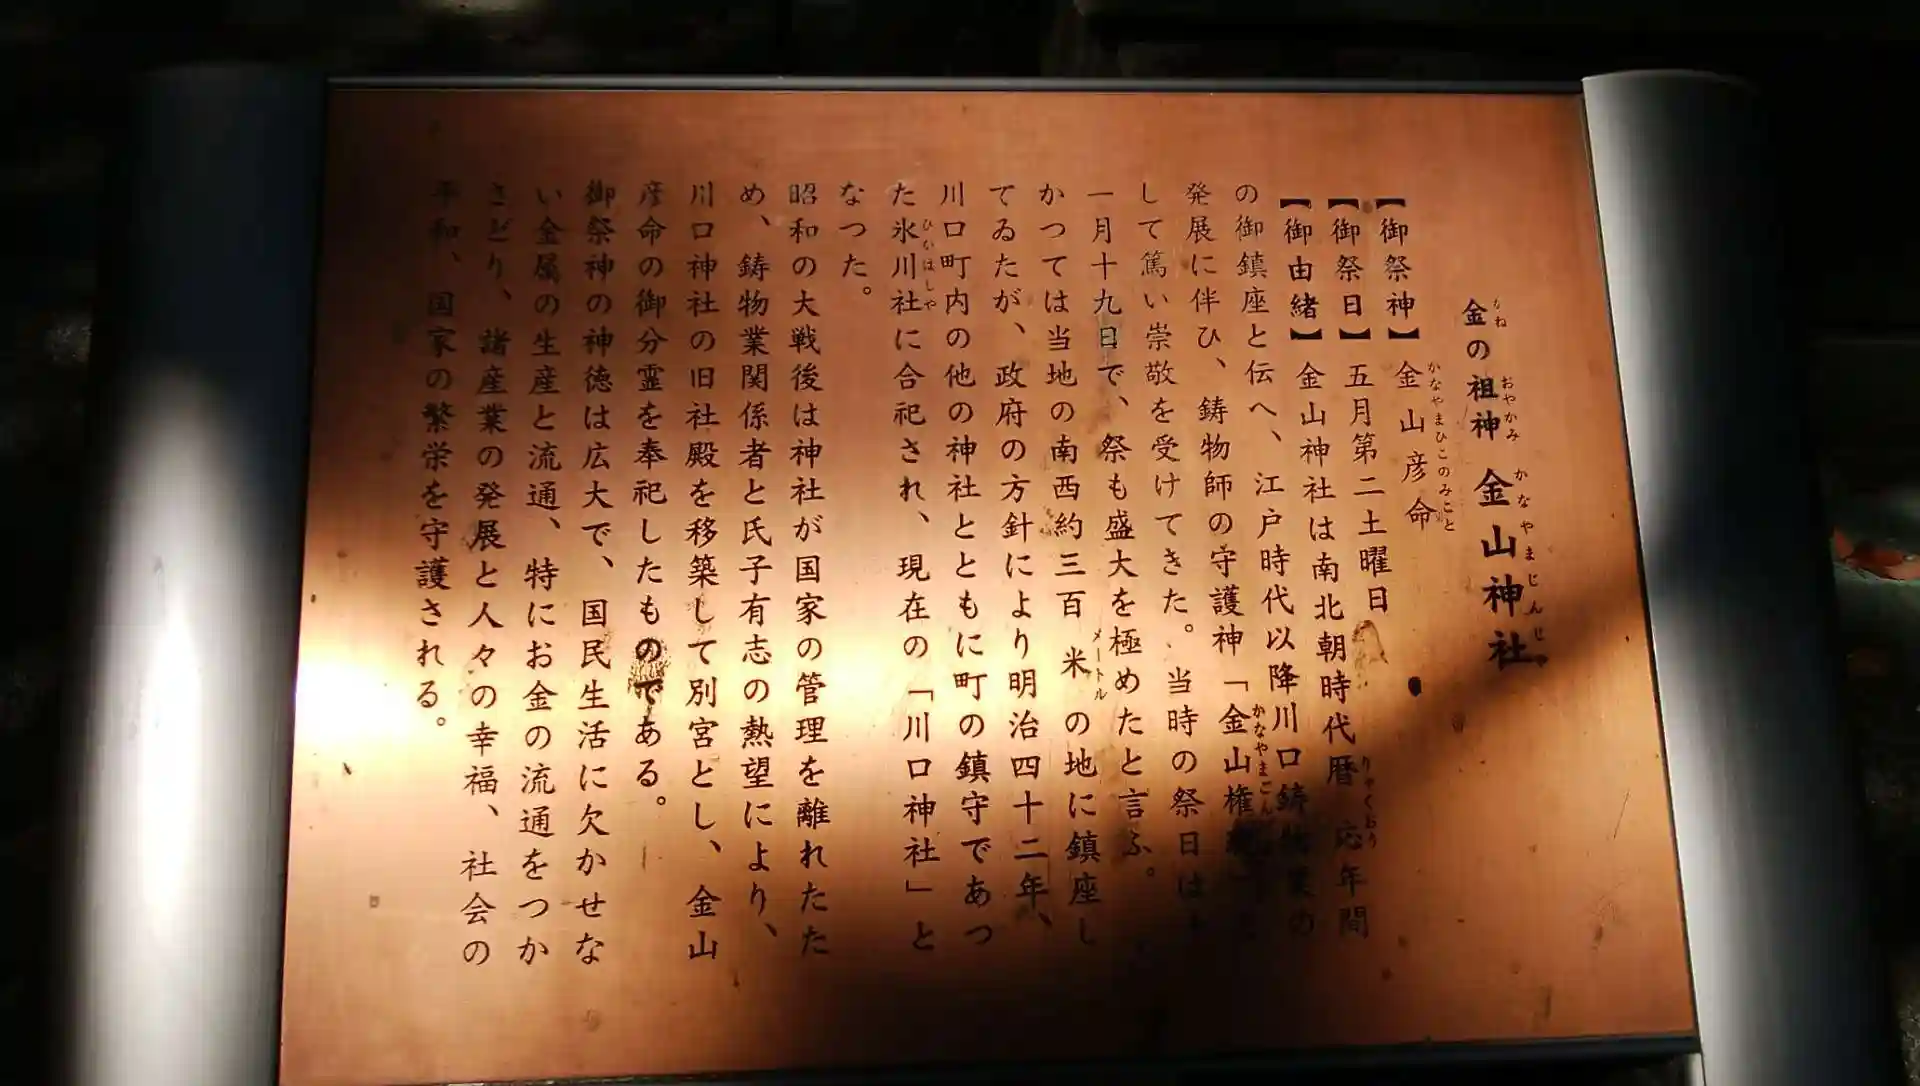 金の祖神 金山神社
かね おやかみ かなやまじんじや
【御祭神】 金山彦命
かなやまひこのみこと
【御祭日】 五月第二土曜日
【御由緒】 金山神社は南北朝時代暦応年間
りやくおう
の御鎮座と伝へ、江戸時代以降川口鋳物業の
発展に伴ひ、鋳物師の守護神「金山権現」と
かなやまごん
して篤い崇敬を受けてきた。当時の祭日は十
一月十九日で、祭も盛大を極めたと言ふ。
かつては当地の南西約三百米の地に鎮座し
メートル
てゐたが、政府の方針により明治四十二年、
川口町内の他の神社とともに町の鎮守であつ
た氷川社に合祀され、現在の「川口神社」と
ひかはしや
なつた。
昭和の大戦後は神社が国家の管理を離れたた
め、鋳物業関係者と氏子有志の熱望により、
川口神社の旧社殿を移築して別宮とし、金山
彦命の御分霊を奉祀したものである。
御祭神の神徳は広大で、国民生活に欠かせな
い金属の生産と流通、特にお金の流通をつか
さどり、諸産業の発展と人々の幸福、社会の
平和、国家の繁栄を守護される。